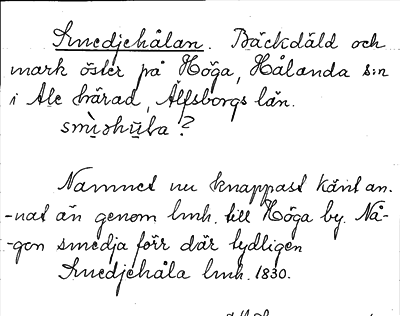 Smedjehålan. Bäckdäld och
mark öster på Höga, Hålanda s:n
i Ale härad, Älfsborgs län.
?
Namnet nu knappast känt an-
-nat än genom lmh. till Höga by. Nå-
-gon smedja förr där tydligen
Smedjehåla lmh. 1830.